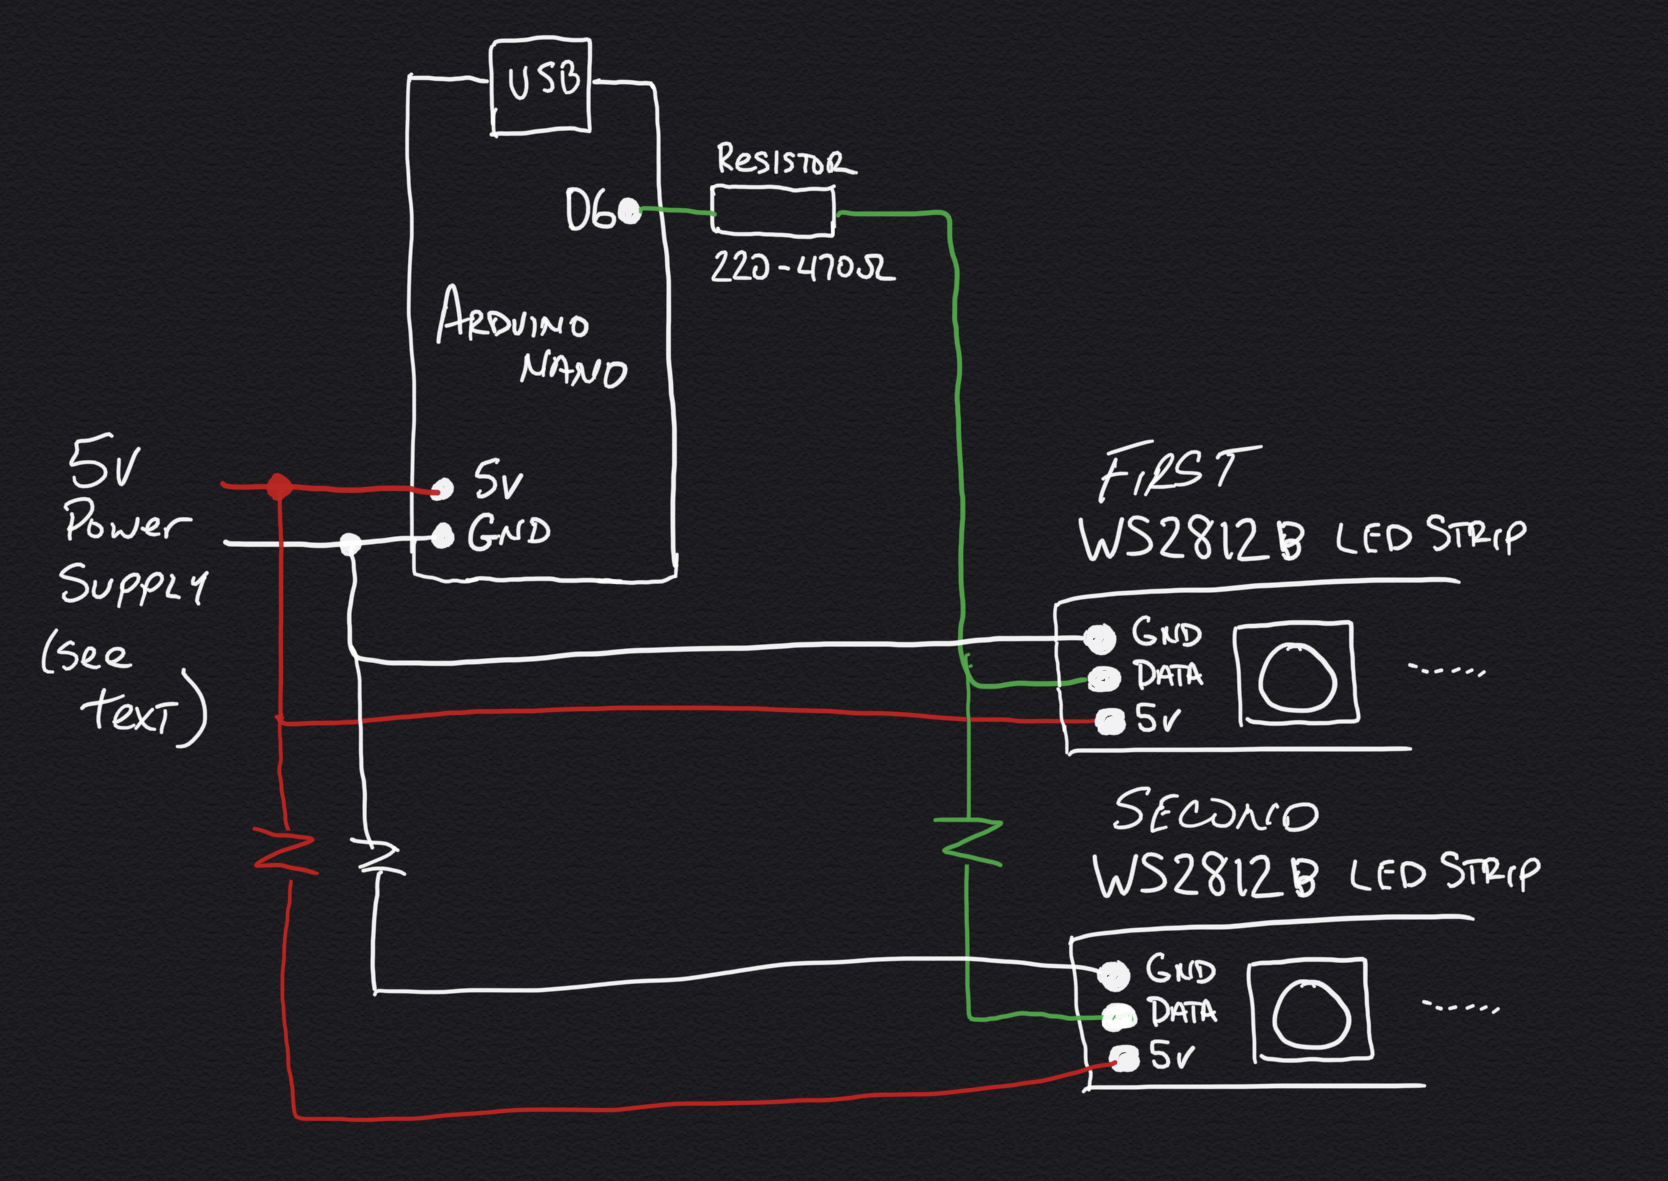 USB
RESISTOR
D6
220-470Ω
ARDUINO
NANO
5V
POWER
SUPPLY
(see
text)
5V
GND
FIRST
WS2812B LED STRIP
GND
DATA
5V
SECOND
WS2812B LED STRIP
GND
DATA
5V